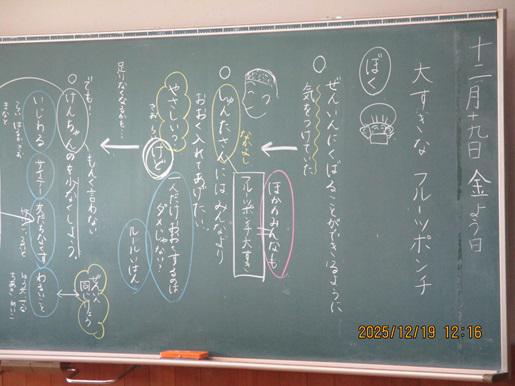 十二月十九日 金よう日
大すきな フルーツポンチ
ぼく
ぜんいんにくばることができるように
気をつけていた
ほかのみんなも
フルーツポンチ大すき
なかよし
しゅんたさんにはみんなより
おおく入れてあげたい。
やさしいっ
けど
一人だけおおくするのは
ダメじゃない?
ルールいはん
足りなくなるかも…
でも…
もんく言わない
けんちゃんのを少なくしよう。
いじわる
サイテー
友だちなのです
わるいこと
ぜんいん
同じりょう
2025/12/19 12:16